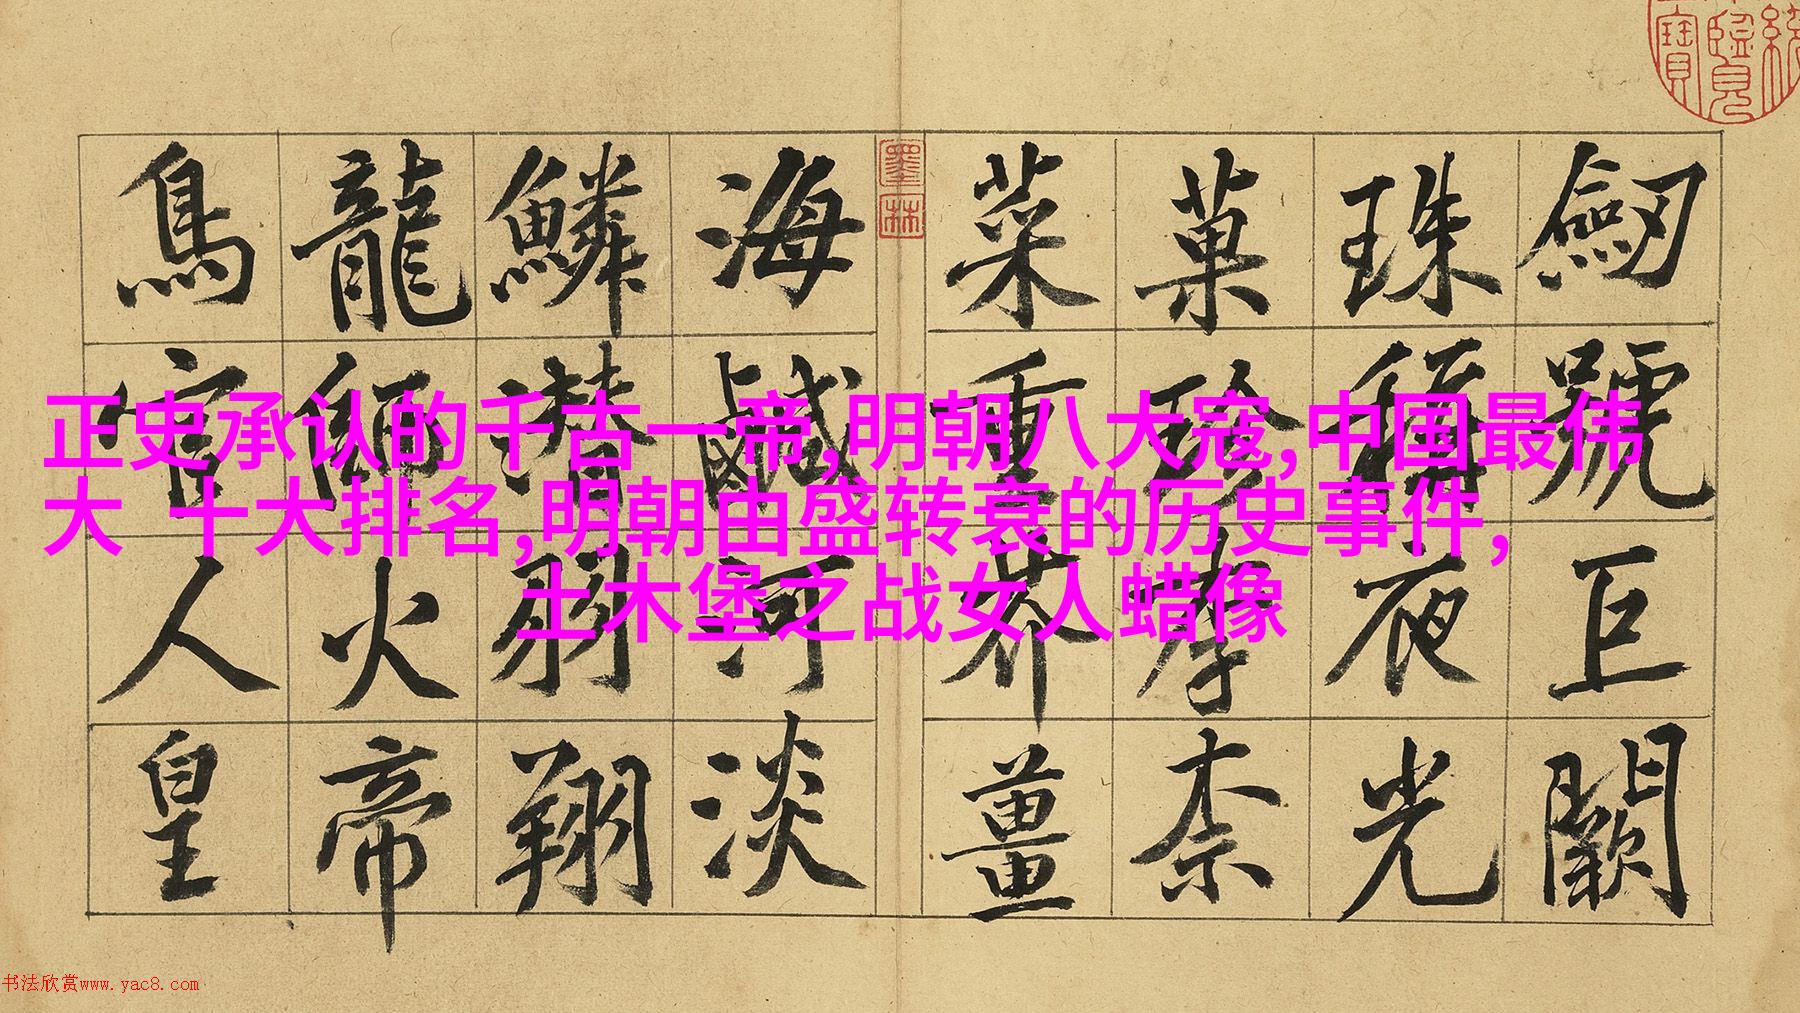 劒號巨闕
珠稱夜光
菓珍李柰
菜重芥薑
海鹹河淡
鱗潛羽翔
龍師火帝
鳥官人皇
墨林
正史承认的千古一帝,明朝八大寇,中国最伟
大 十大排名,明朝由盛转衰的历史事件,
土木堡之战女人蜡像
书法欣赏www.yac8.com